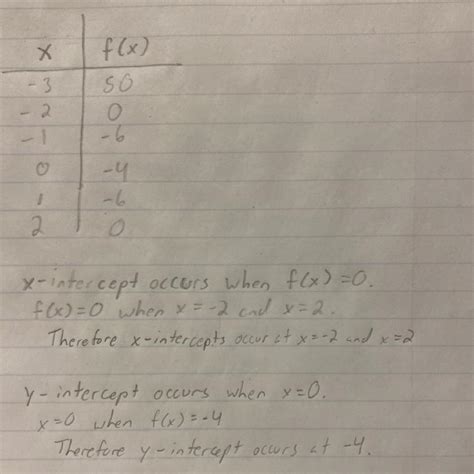 x f(x)
-3 50
-2 0
-1 -6
0 -4
1 -6
2 0
x-intercept occurs when f(x)=0.
f(x)=0 when x=-2 and x=2.
Therefore x-intercepts occur at x=-2 and x=2
y-intercept occurs when x=0.
x=0 when f(x)=-4
Therefore y-intercept occurs at -4.